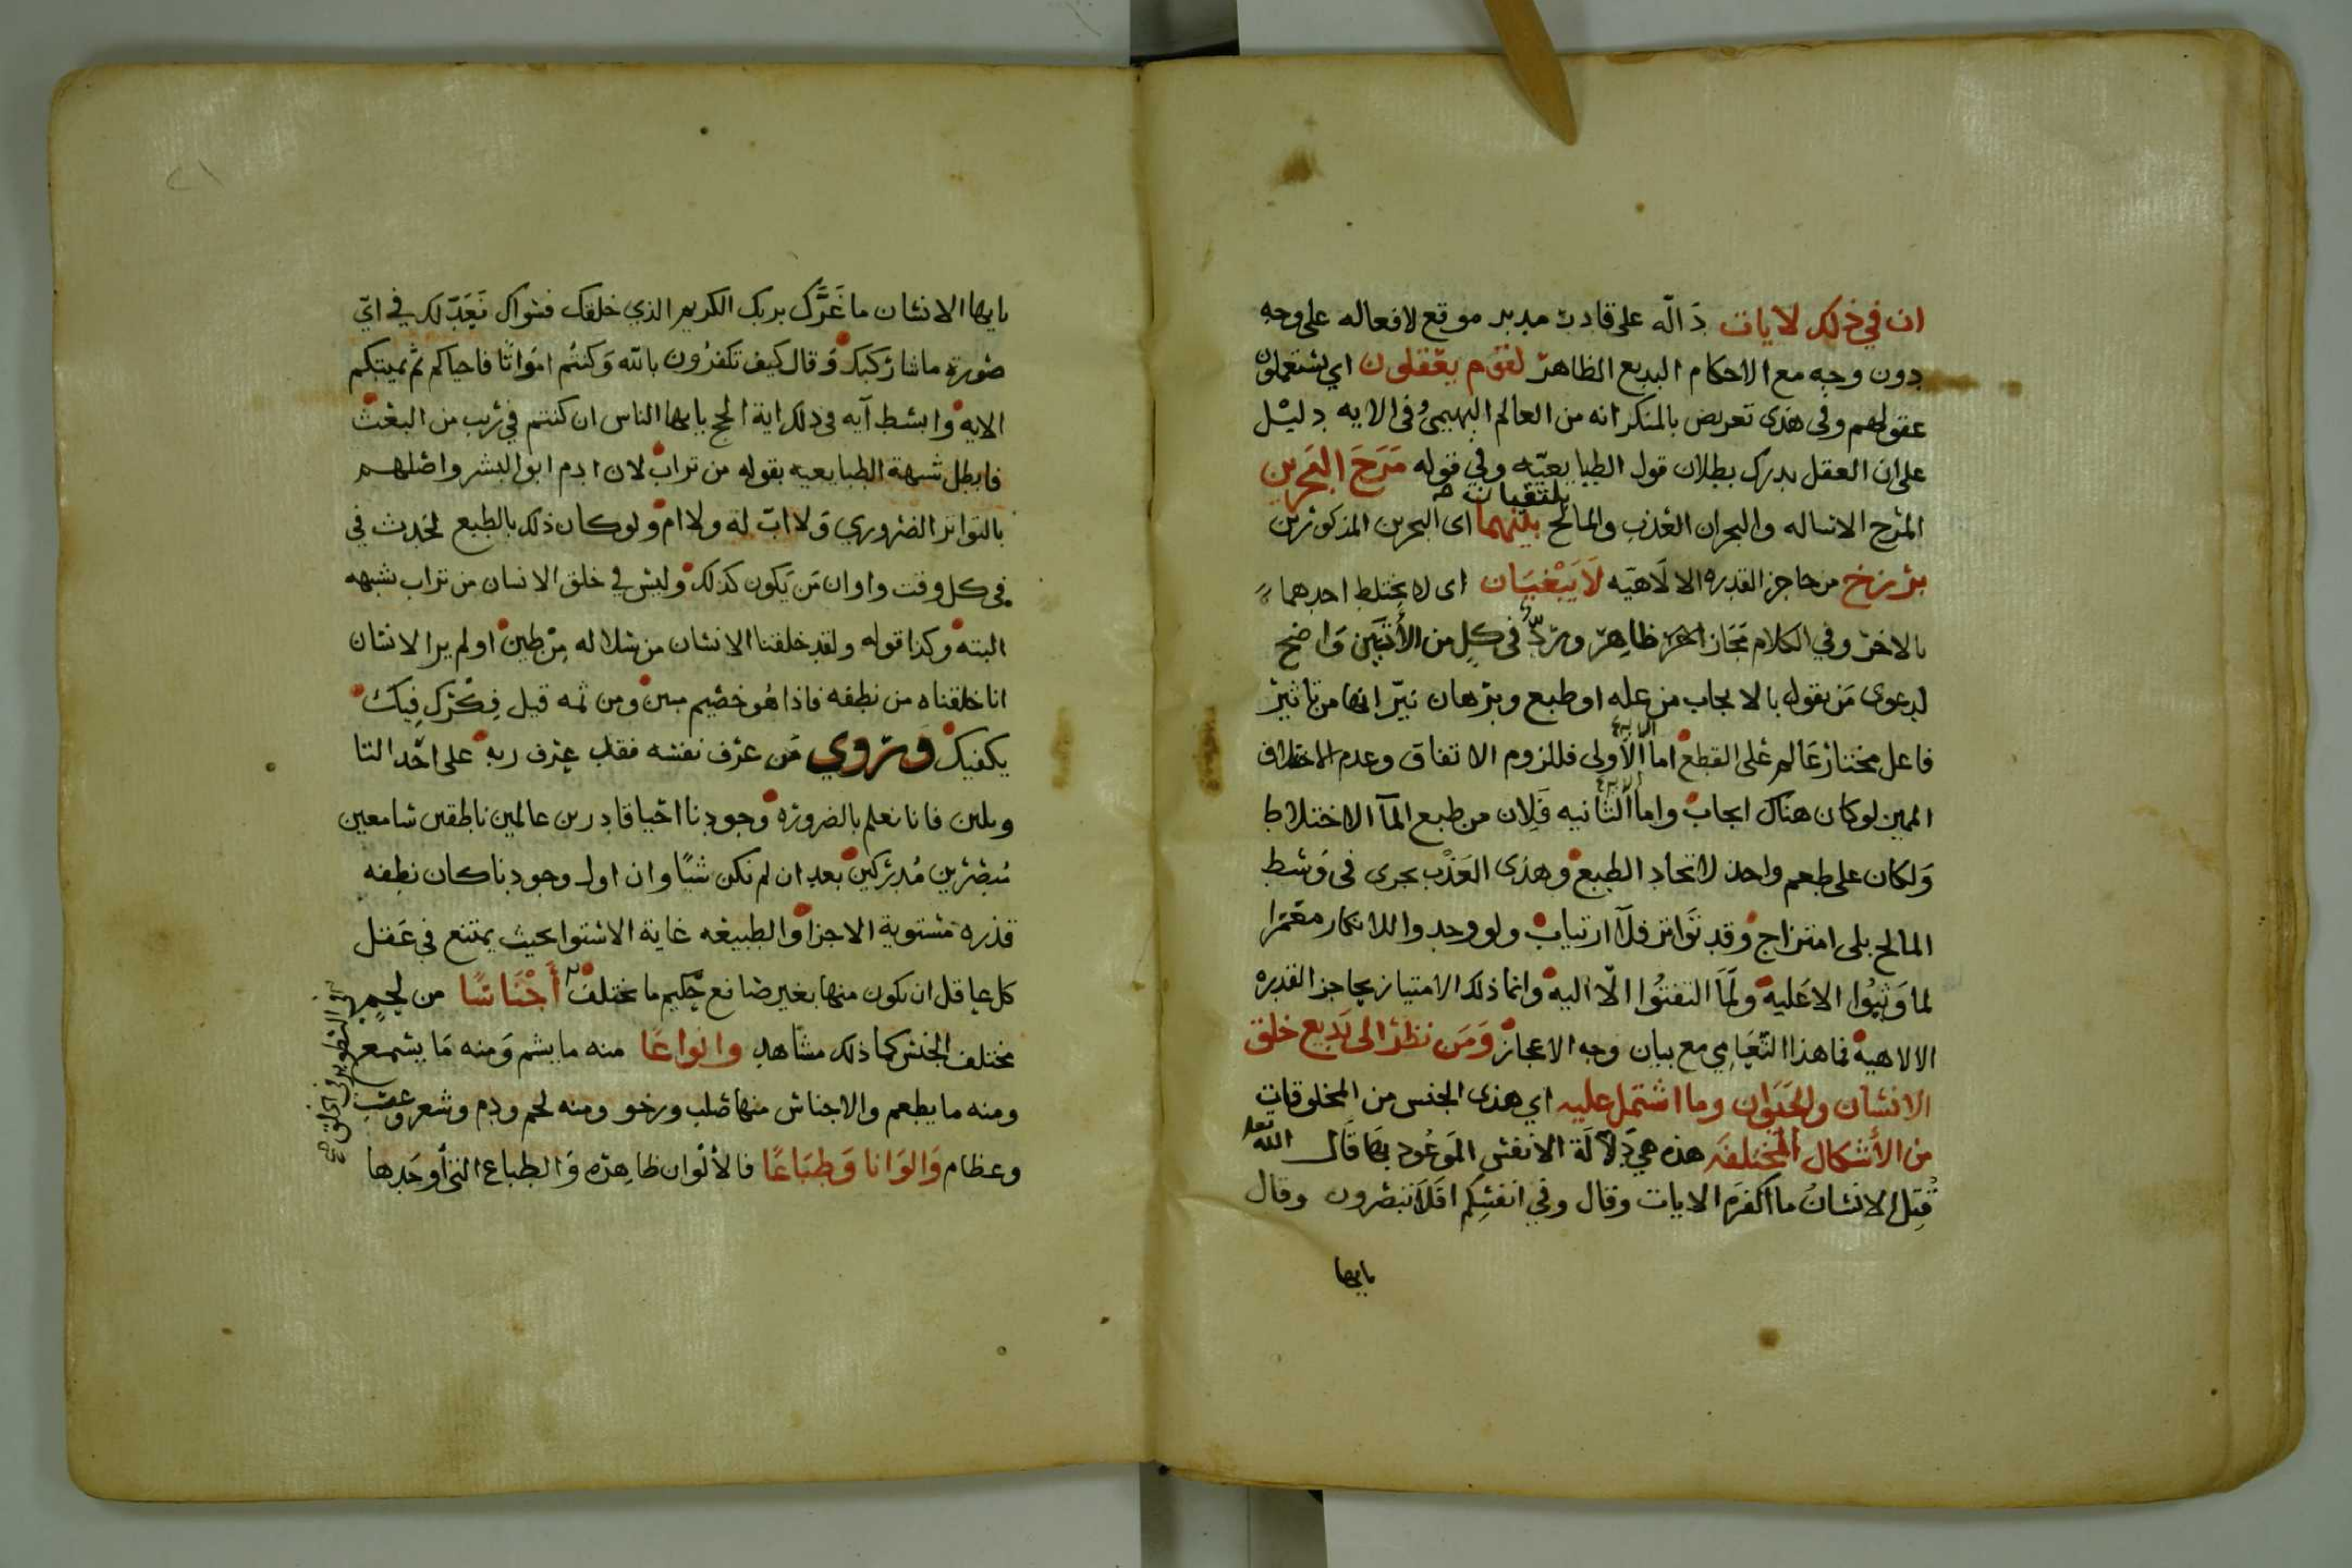 ان في ذلك لايات دَالّه على قادر مدبر موقع لافعاله على وجه
دون وجه مع الاحكام البديع الظاهر لقوم يعقلون اي يستعملون
عقولهم وفي هذى تعريض بالمنكر انه من العالم البهيمي وفي الايه دليل
على ان العقل يدرك بطلان قول الطبايعيّه وفي قوله مَرَجَ البَحرين
يلتقيان
المَرج الارساله والبحران العَذب والمالح بينهما اى البحرين المذكورين
برزخ من حاجز القدره الالاهيّه لَا يَبْغيَان اى لا يختلط احدهما
بالاخر وفي الكلام مَجَاز ظاهر وردّ في كل من الأيتين وَاضح
لدعوى مَن يقول بالايجاب من عله او طبع وبرهان نيّر انها من تاثير
فاعل مختار عَالم على القطع اما الاولى فللزوم الاتفاق وعدم الاختلاف
الايه
المين لو كان هناك ايجاب واما الثانيه فَلِان من طبع المآ الاختلاط
الايه
وَلكان على طعم واحد لاتحاد الطبع وهذى العَذْب يجرى في وَسَط
المالح بلى امتزاج وَقد تَوَاتر فلَا ارتياب ولو وجدوا للانكار مغمزا
لما وَثبُوا الا عَليه ولَمَا التفتُوا الّا اليه وانما ذلك الامتياز بحاجز القدره
الالاهية فما هذا التّعَامِي مع بيان وجه الاعجاز وَمَن نظر الى بَديع خلق
الانسان والحَيَوان وما اشتمل عليه اي هذى الجنس من المخلوقات
من الأشكال المختلفَه هذه هي دِلَالَة الانفس المَوعُود بهَا قَال الله تعلى
قُتِل الانسَانُ ما اكفرَه الايات وقال وفي انفسِكم افَلَا تبصرون وقال
يايها
يايها الانسَان ما غَرَّك بربك الكريم الذي خلقك فسَواك فَعَدَّلك في ايّ
صُورة ما شا رَكبَك وَقال كيف تكفرُون بالله وَكنتُم امَواتًا فاحياكم ثم يميتكم
الايه وابسَط آيه في ذلك اية الحج يايها الناس ان كنتم في رَيب من البعث
فابطل شبهة الطبايعيه بقوله من تراب لان ادم ابو البشر واصلهم
بالتواتر الضروري وَلا ابّ له ولا ام ولو كان ذلك بالطبع لحَدث في
في كل وقت واوان مَن يَكون كذلك وليس في خلق الانسان من تراب شبهه
البته وكذا قوله ولقد خلقنا الانسَان من سلاله مِن طين اولم ير الانسَان
انا خلقناه من نطفه فاذا هُو خصيم مبين ومن ثمه قيل فِكْرَك فِيكَ
يكفيك وَرُوي مَن عرَف نفسَه فقد عرَف ربه على احَد التا
ويلين فانا نعلم بالضرورَه وَجودنا احيا قادرين عالمين ناطقين سَامعين
مُبصرين مُدركين بعد ان لم نكن شيًا وان اول وجودنا كان نطفه
قذره مستوية الاجزا والطبيعه غاية الاستوا بحيث يمتنع في عَقل
كل عاقل ان يكون منها بغير صَانع حكيم ما يختلف أَجْنَاسًا من لحم
مختلف الجنس كما ذلك مشَاهد وانواعًا منه ما يشم وَمنه مَا يسمع
ومنه ما يطعم والاجناس منها صَلب ورخو ومنه لحم ودم وشعر وعصب
وعظام وَالوَانا وَطبَاعًا فالألوَان ظاهره وَالطباع التي أوحَدها